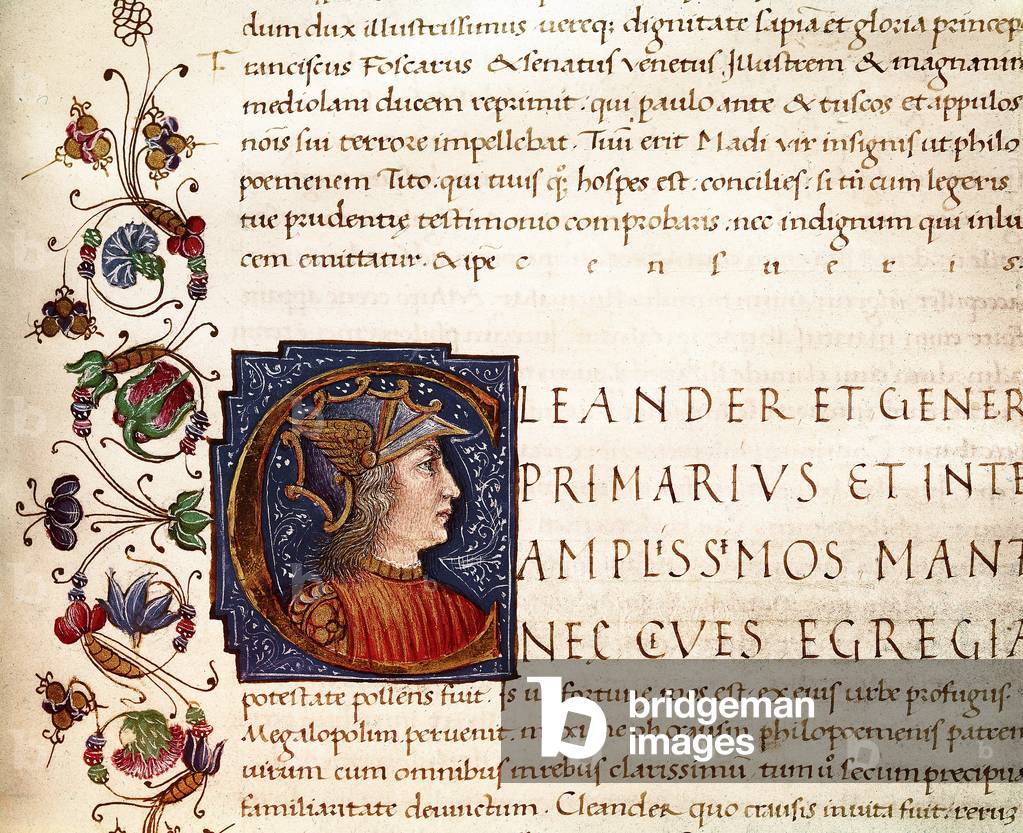 dum dux illustrissimus uereq; dignitate sapia et gloria princep
Franciscus Foscarus & senatus venetus. Illustrem & magnanim
mediolani ducem reprimit. qui paulo ante & tuscos et appulos
nois sui terrore impellebat. Tuu erit Madi vir insignis ut philo
poemenem Tito. qui tuus q; hospes est. concilies. si tu cum legeris
tue prudentię testimonio comprobaris. nec indignum qui in lu
cem emittatur. & ipe c e n s u e r i s.
CLEANDER ET GENER
PRIMARIVS ET INTE
AMPLISSIMOS MANT
NEC CIVES EGREGIA
potestate pollens fuit. Is ut fortune mos est. ex eius urbe profugus
Megalopolim peruenit. maxime ob crausin philopoemenis patrem
uirum cum omnibus in rebus clarissimu. tum u secum precipua
familiaritate deuinctum. Cleander quo crausis inuita fuit. rerus
bridgeman
images